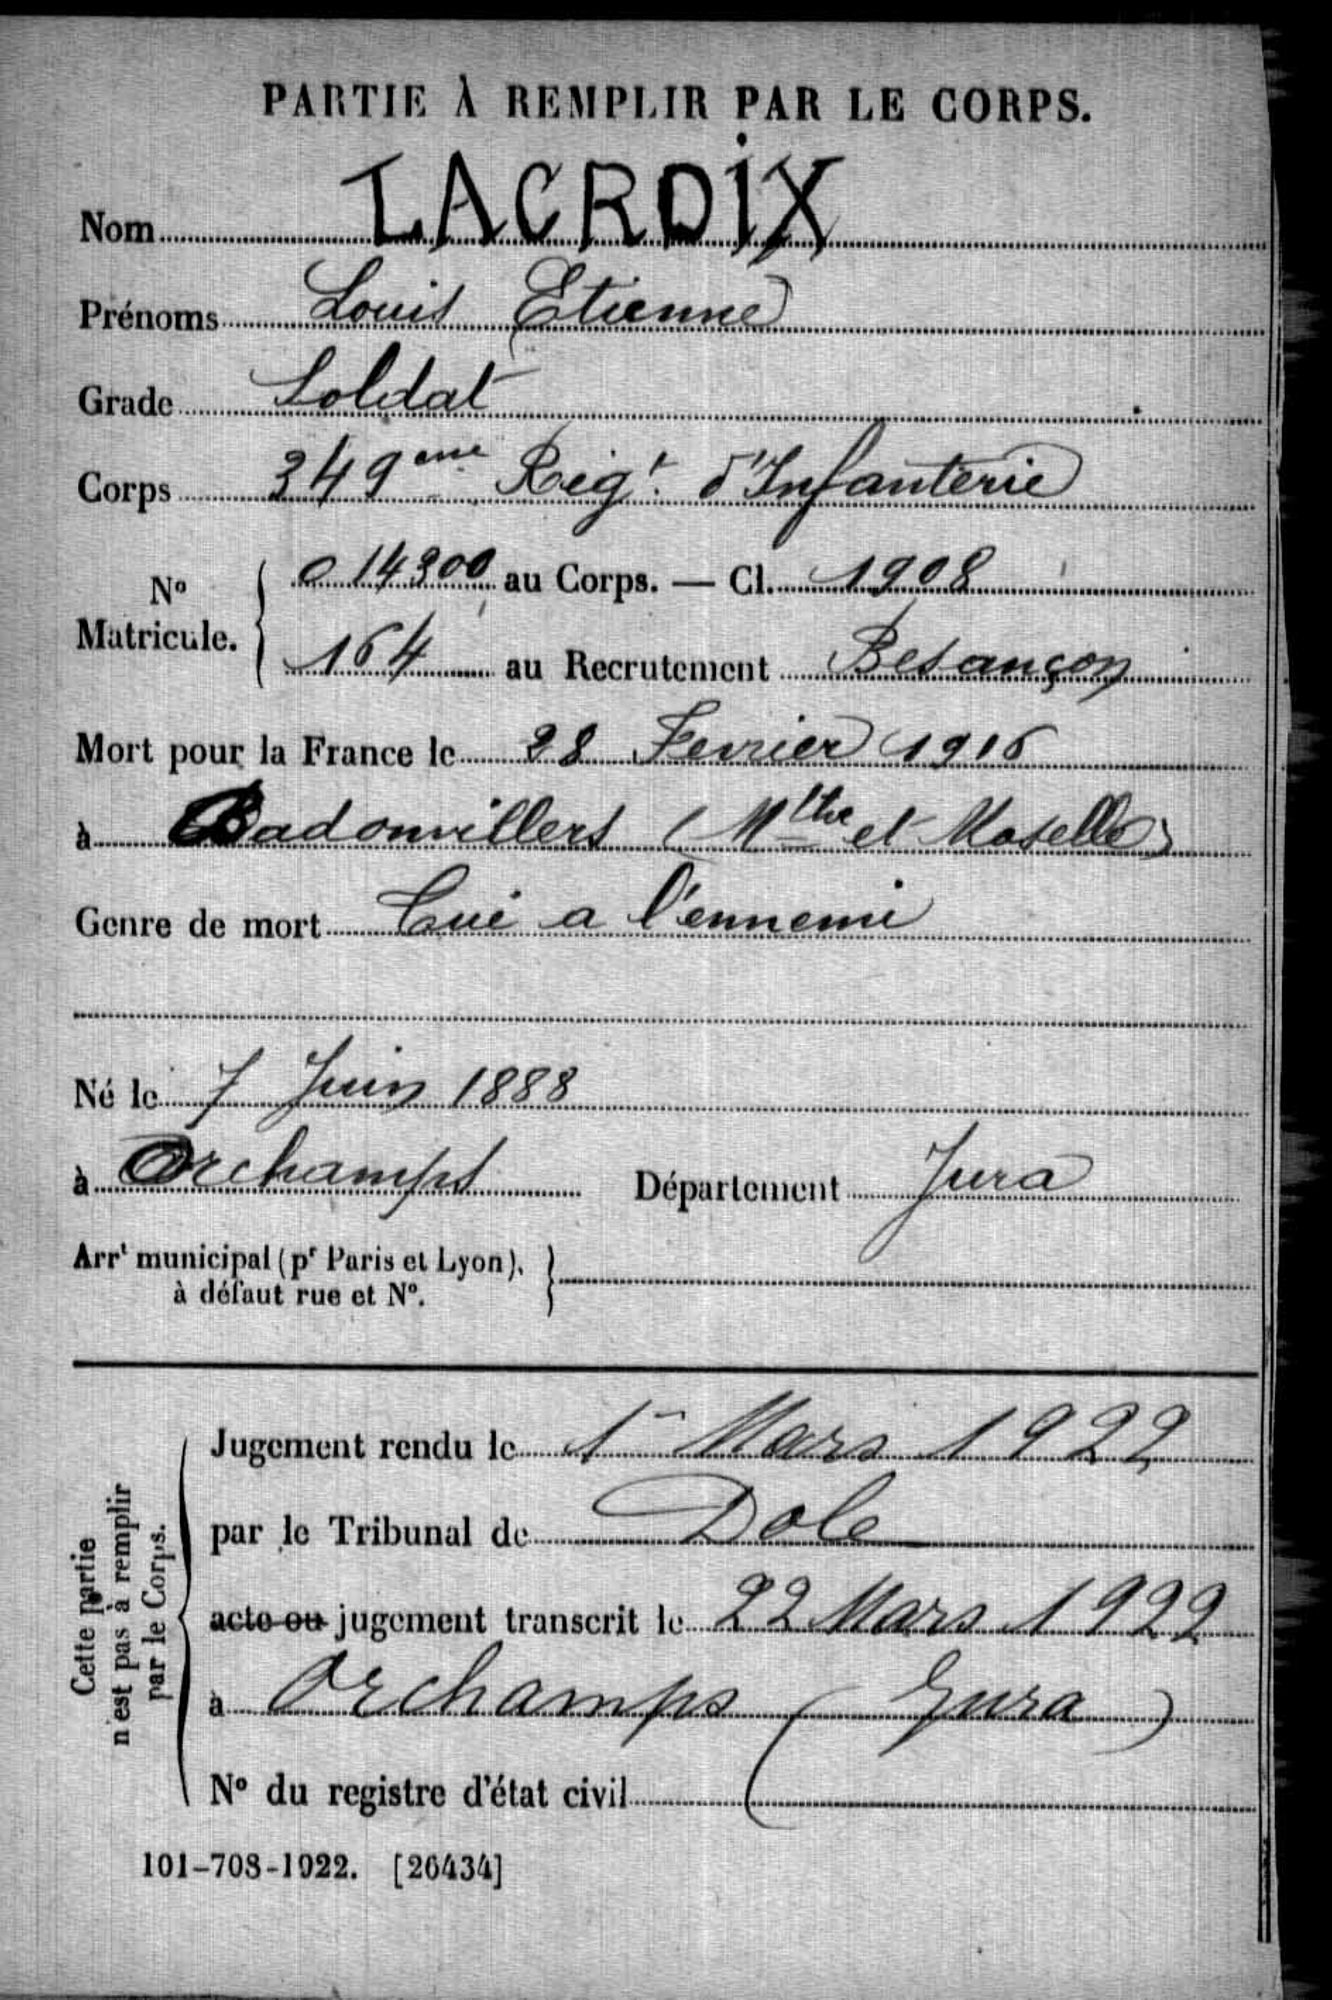 PARTIE À REMPLIR PAR LE CORPS.
Nom LACROIX
Prénoms Louis Etienne
Grade Soldat
Corps 349eme Regt. d'Infanterie
No Matricule. { 014300 au Corps. — Cl. 1908
164 au Recrutement Besançon
Mort pour la France le 28 Fevrier 1916
à Badonvillers (Mthe et Moselle)
Genre de mort Tué a l'ennemi
Né le 7 Juin 1888
à Orchamps Département Jura
Arrt municipal (pr Paris et Lyon), }
à défaut rue et No.
Cette partie
n'est pas à remplir
par le Corps.
Jugement rendu le 1r Mars 1922
par le Tribunal de Dole
acte ou jugement transcrit le 22 Mars 1922
à Orchamps (Jura)
No du registre d'état civil
101-708-1922. [26434]